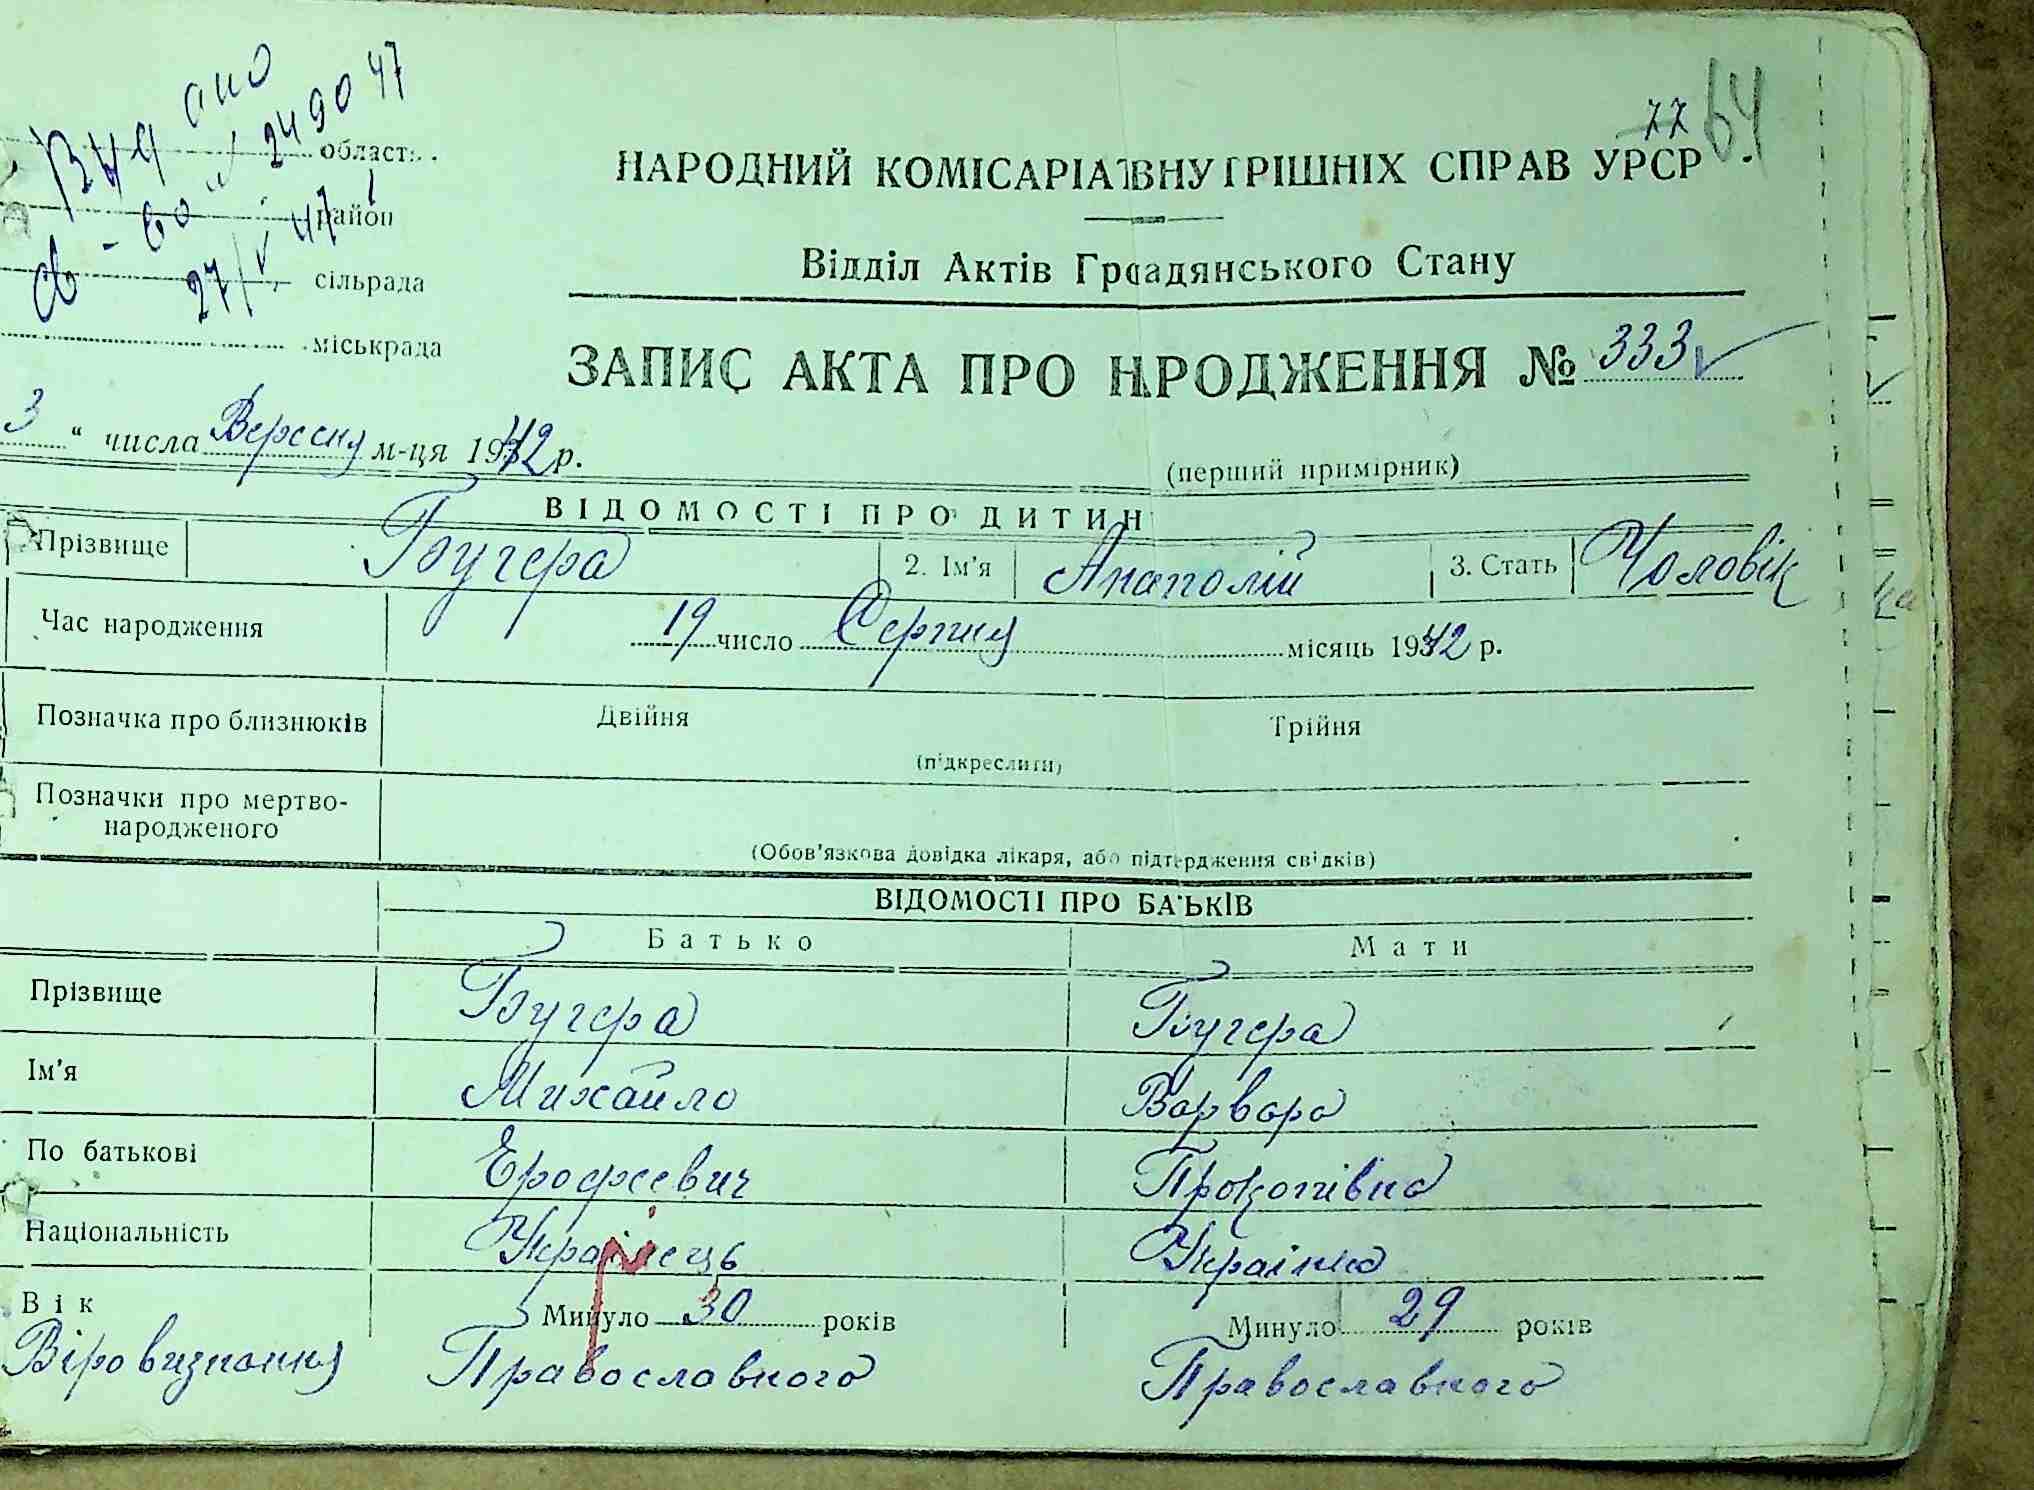 Видано
св-во 249047
27/V 47
област.
район
сільрада
міськрада
77 64
НАРОДНИЙ КОМІСАРІАТ ВНУТРІШНІХ СПРАВ УРСР
Відділ Актів Громадянського Стану
ЗАПИС АКТА ПРО НАРОДЖЕННЯ № 333
3 " числа Вересня м-ця 1942 р.
(перший примірник)
ВІДОМОСТІ ПРО ДИТИН
Прізвище Бугера 2. Ім'я Анатолій 3. Стать Чоловік
Час народження 19 число Серпня місяць 1942 р.
Позначка про близнюків Двійня Трійня
(підкреслити)
Позначки про мертво-
народженого
(Обов'язкова довідка лікаря, або підтвердження свідків)
ВІДОМОСТІ ПРО БАТЬКІВ
Батько Мати
Прізвище Бугера Бугера
Ім'я Михайло Варвара
По батькові Єрофієвич Прокопівна
Національність Українець Українка
Вік Минуло 30 років Минуло 29 років
Віровизнання Православного Православного